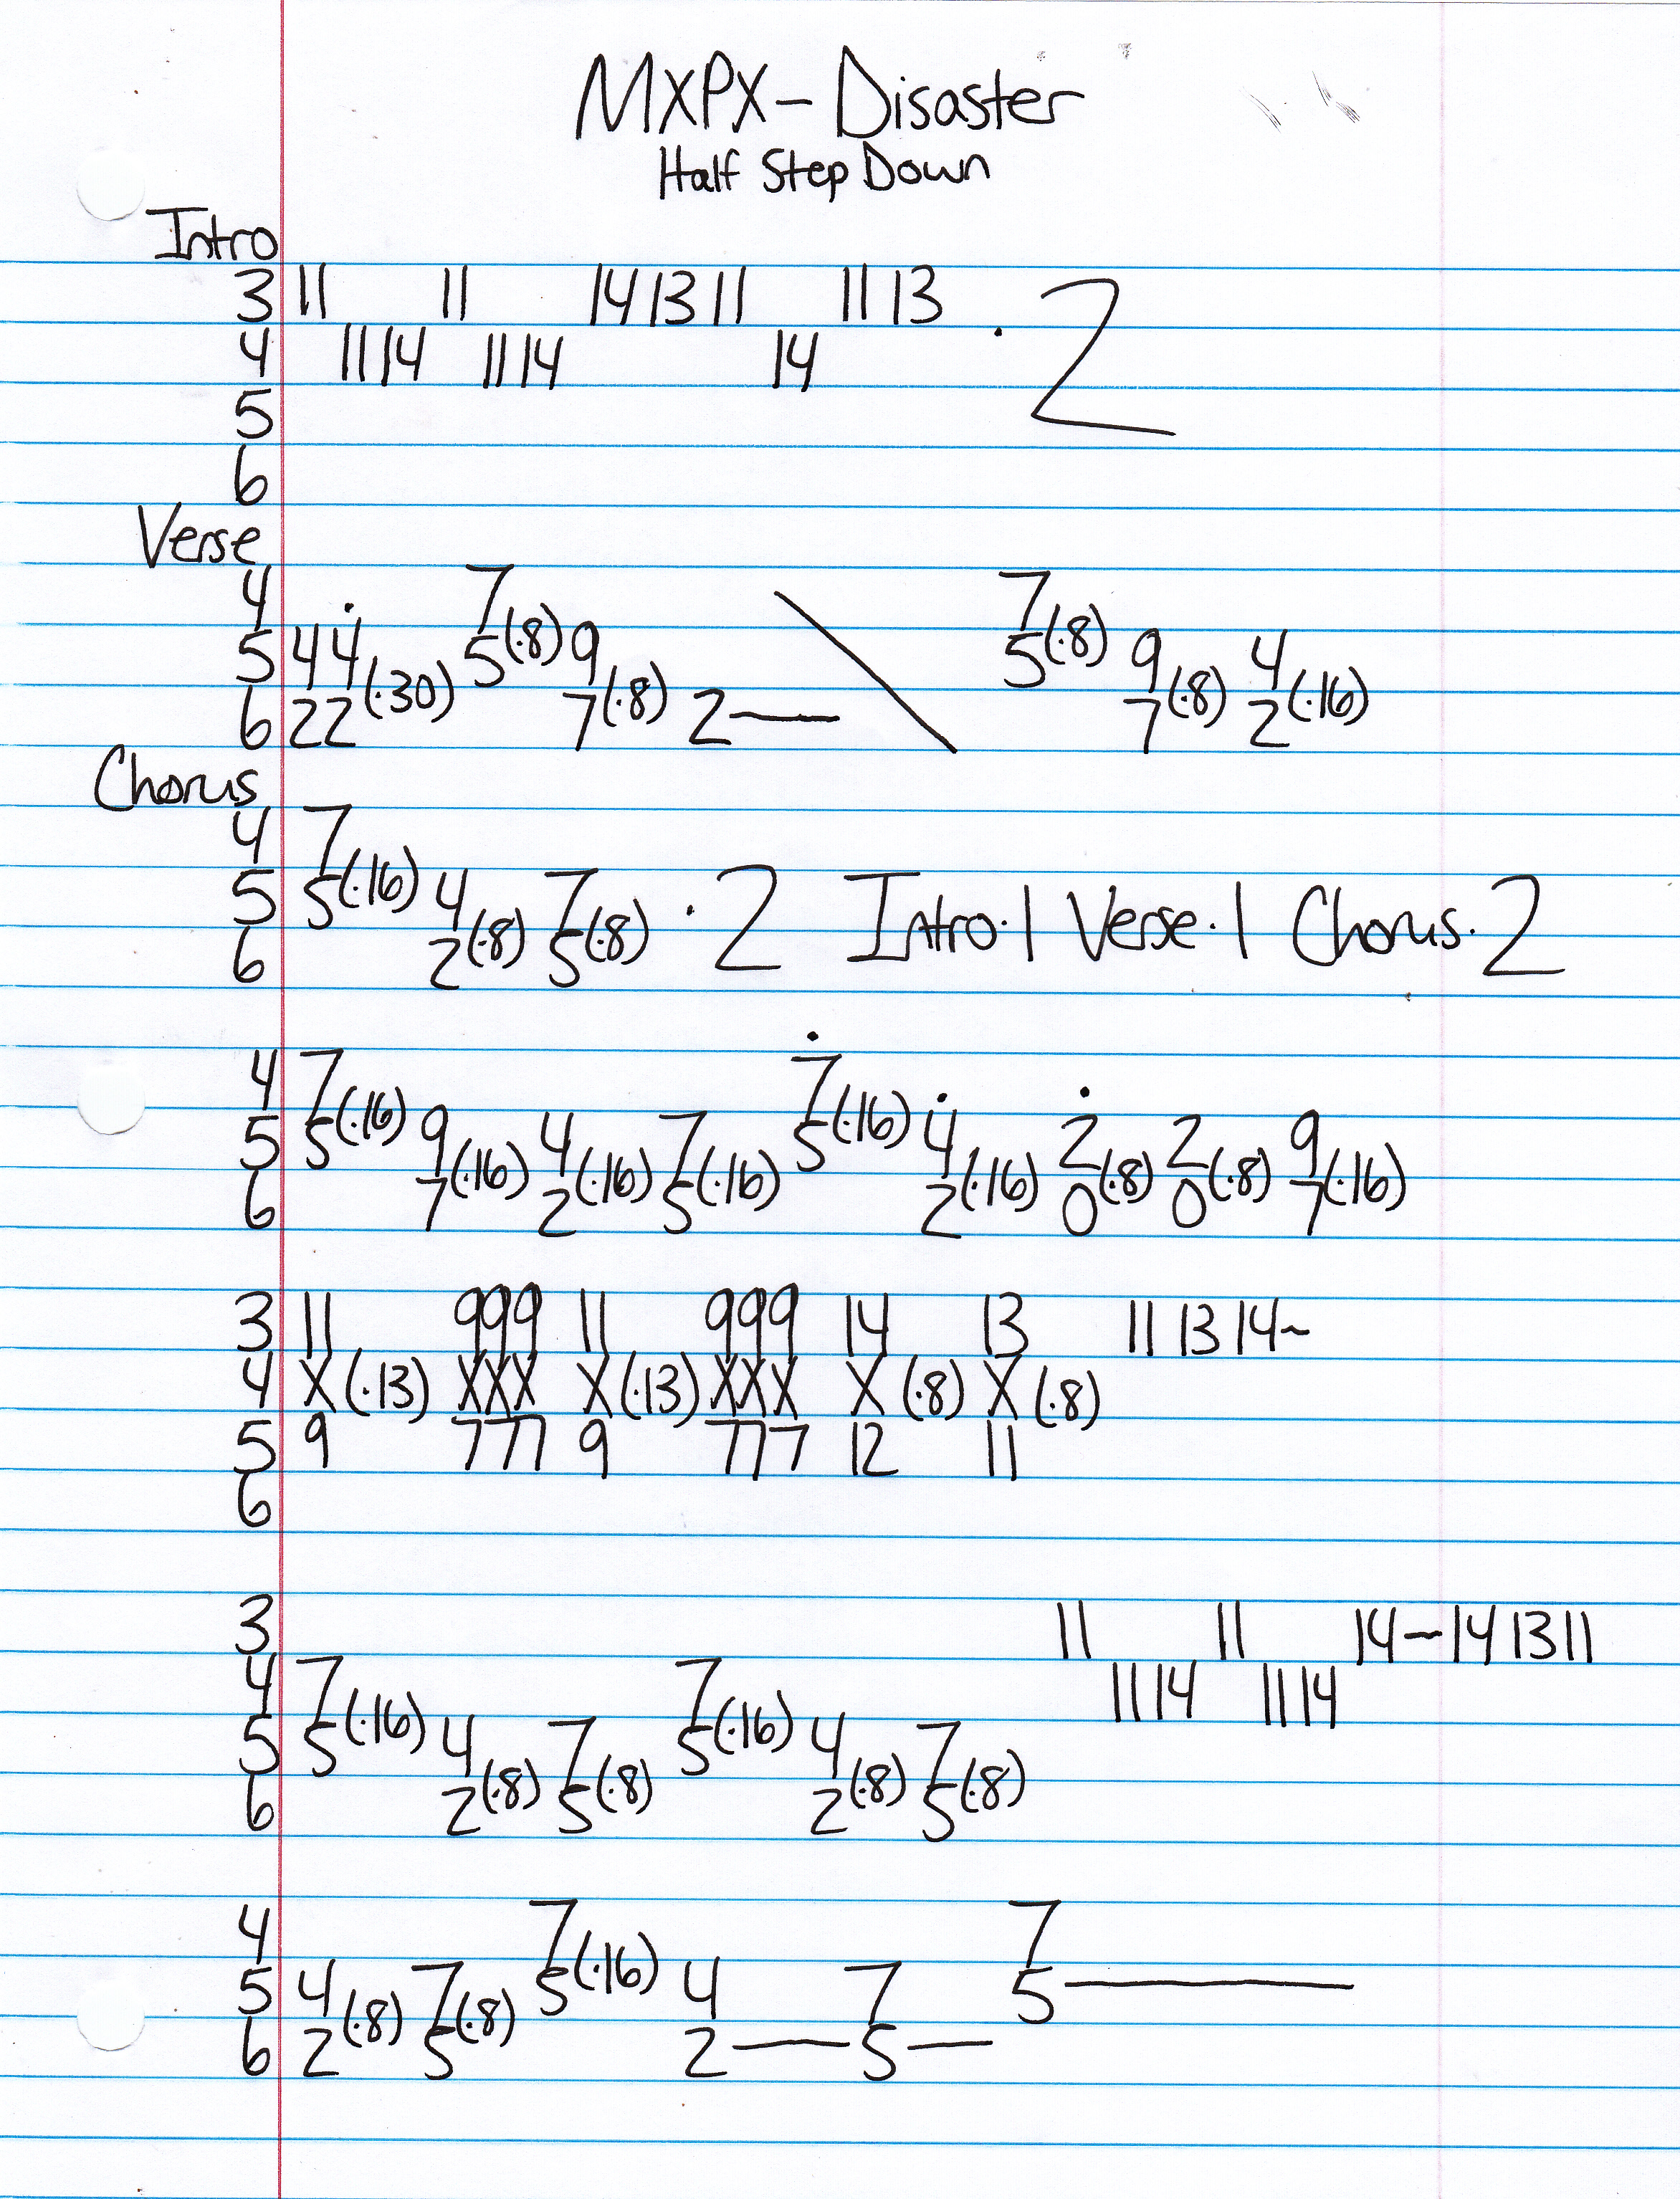 MXPX - Disaster
Half Step Down
Intro
3 11 11 14 13 11 11 13
4 11 14 11 14 14 · 2
5
6
Verse
4 7 7
5 4 4̇ 5(·8) 9 5(·8) 9 4
6 2 2 (·30) 7(·8) 2— \ 7(·8) 2(·16)
Chorus
4 7
5 5(·16) 4 7 · 2 Intro·1 Verse·1 Chorus·2
6 2(·8) 5(·8)
4 7 7̇
5 5(·16) 9 4 7 5(·16) 4̇ 2̇ 2 9
6 7(·16) 2(·16) 5(·16) 2(·16) 0(·8) 0(·8) 7(·16)
3 11 999 11 999 14 13 11 13 14~
4 X (·13) XXX X (·13) XXX X (·8) X (·8)
5 9 777 9 777 12 11
6
3 11 11 14~14 13 11
4 7 7 11 14 11 14
5 5(·16) 4 7 5(·16) 4 7
6 2(·8) 5(·8) 2(·8) 5(·8)
4 7 7
5 4 7 5(·16) 4 7 5—
6 2(·8) 5(·8) 2—5—